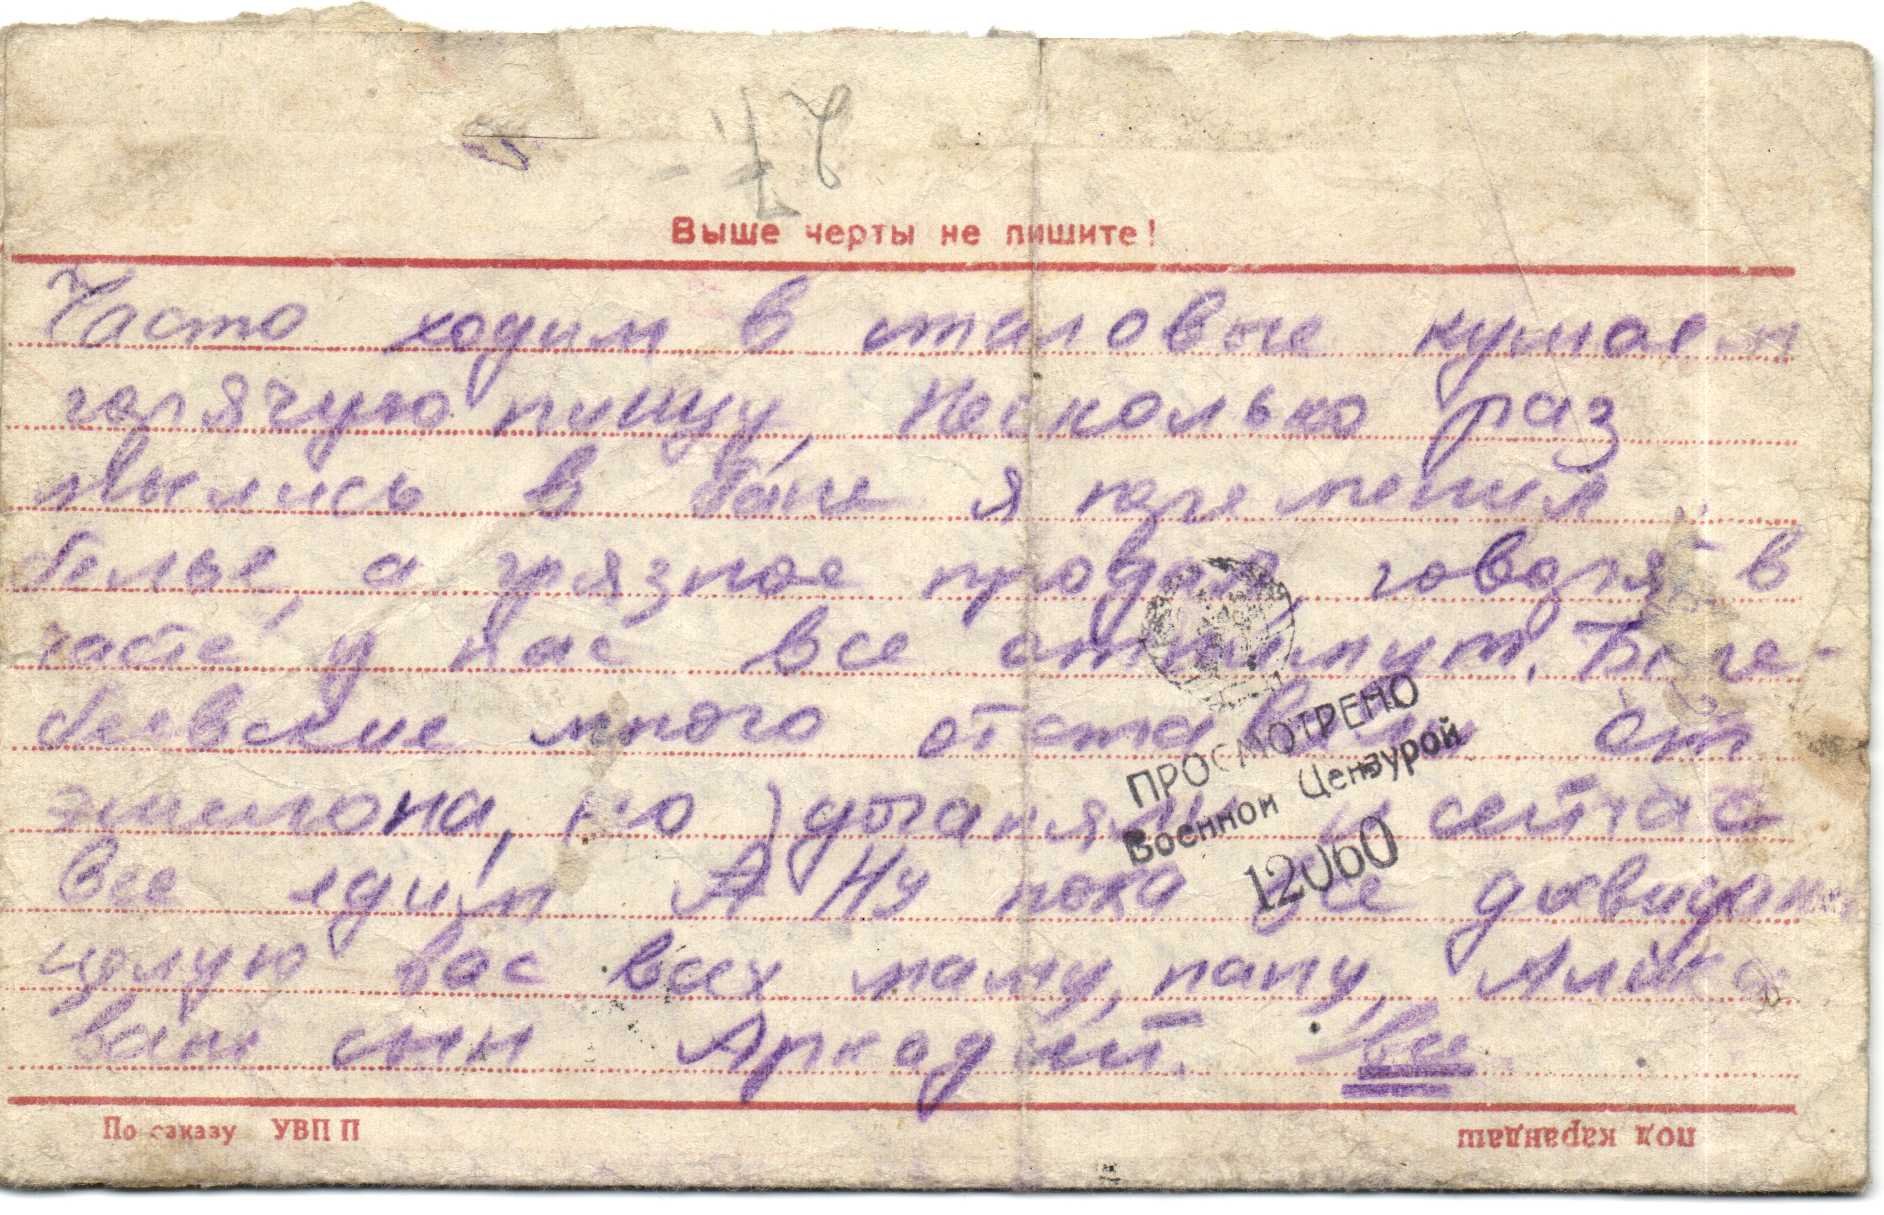 Выше черты не пишите!
Часто ходим в сталовые кушаем
горячую пищу, Несколько раз
мылись в бане я переменил
белье, а грязное продал, говорят в
часте у нас все отнимут.
много отставали от
эшилона, но догоняли и сейчас
все едим Ну пока все досвидан
целую вас всех маму, папу,
ваш сын Аркадий. все
ПРОСМОТРЕНО
Военной Цензурой
12060
По заказу УВПП
под карандаш